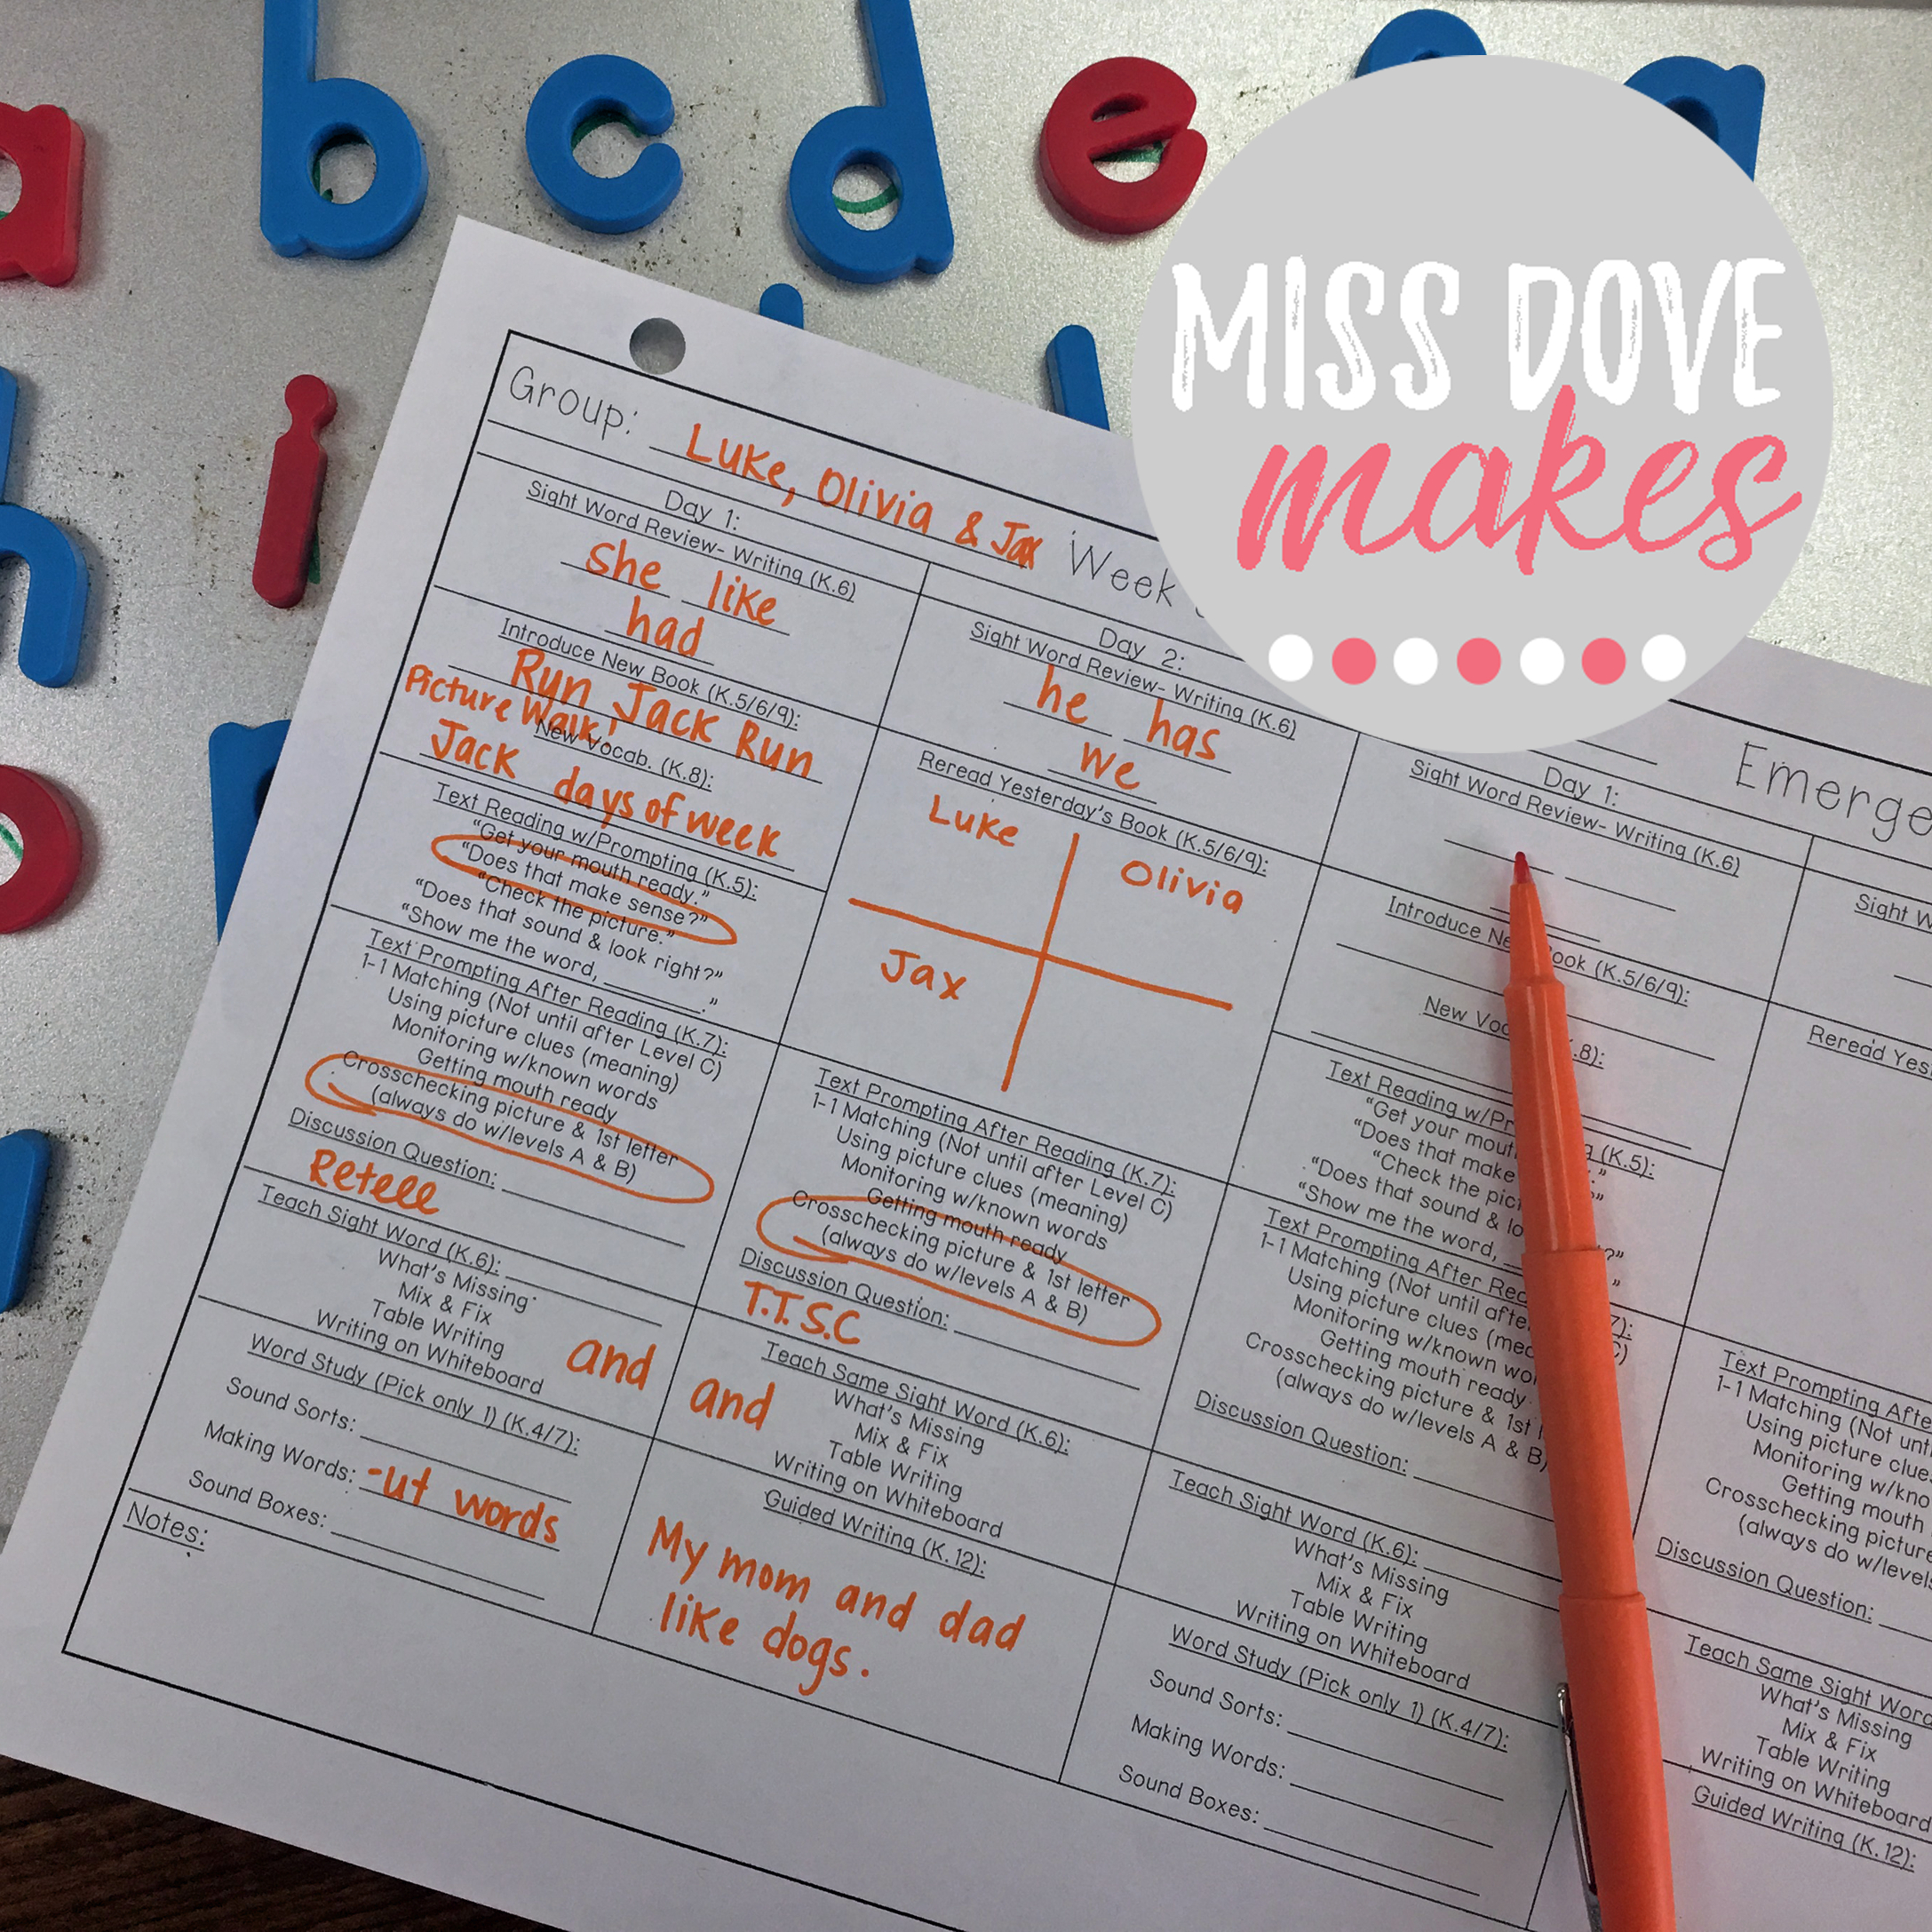 a b c d e
i
h
MISS DOVE
makes
Group: Luke, Olivia & Jax Week
Emerge
Day 1:
Sight Word Review- Writing (K.6)
she like
had
Introduce New Book (K.5/6/9):
Run Jack Run
Picture Walk!
New Vocab. (K.8):
Jack days of week
Text Reading w/Prompting (K.5):
"Get your mouth ready."
"Does that make sense?"
"Check the picture."
"Does that sound & look right?"
"Show me the word, ________."
Text Prompting After Reading (K.7):
1-1 Matching (Not until after Level C)
Using picture clues (meaning)
Monitoring w/known words
Getting mouth ready
Crosschecking picture & 1st letter
(always do w/levels A & B)
Discussion Question:
Retell
Teach Sight Word (K.6):
What's Missing
Mix & Fix
Table Writing
Writing on Whiteboard
and
Word Study (Pick only 1) (K.4/7):
Sound Sorts:
Making Words: -ut words
Sound Boxes:
Notes:
Day 2:
Sight Word Review- Writing (K.6)
he has
we
Reread Yesterday's Book (K.5/6/9):
Luke
Olivia
Jax
Text Prompting After Reading (K.7):
1-1 Matching (Not until after Level C)
Using picture clues (meaning)
Monitoring w/known words
Getting mouth ready
Crosschecking picture & 1st letter
(always do w/levels A & B)
Discussion Question:
T.T.S.C
Teach Same Sight Word (K.6):
and
What's Missing
Mix & Fix
Table Writing
Writing on Whiteboard
Guided Writing (K.12):
My mom and dad
like dogs.
Day 1:
Sight Word Review- Writing (K.6)
Introduce Ne ook (K.5/6/9):
New Voc .8):
Text Reading w/Pr g (K.5):
"Get your mout ."
"Does that make ?"
"Check the pict
"Does that sound & lo ?"
"Show me the word, "
Text Prompting After Rea 7):
1-1 Matching (Not until afte C)
Using picture clues (mea
Monitoring w/known wo
Getting mouth ready
Crosschecking picture & 1st l
(always do w/levels A & B)
Discussion Question:
Teach Sight Word (K.6):
What's Missing
Mix & Fix
Table Writing
Writing on Whiteboard
Word Study (Pick only 1) (K.4/7):
Sound Sorts:
Making Words:
Sound Boxes:
Sight W
Reread Yes
Text Prompting Afte
1-1 Matching (Not unti
Using picture clues
Monitoring w/kno
Getting mouth
Crosschecking picture
(always do w/levels
Discussion Question:
Teach Same Sight Word
What's Missing
Mix & Fix
Table Writing
Writing on Whiteboard
Guided Writing (K.12):